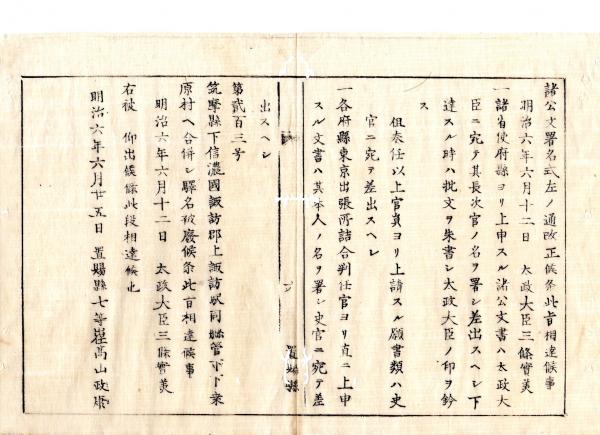 諸公文署名式左ノ通改正候条此旨相達候事
明治六年六月十二日　太政大臣三條實美
一諸省使府縣ヨリ上申スル諸公文書ハ太政大
臣ニ宛テ其長次官ノ名ヲ署シ差出スヘシ下
達スル時ハ批文ヲ朱書シ太政大臣ノ印ヲ鈐
ス
但奏任以上官員ヨリ上請スル願書類ハ史
官ニ宛テ差出スヘシ
一各府縣東京出張所詰合判任官ヨリ直ニ上申
スル文書ハ其本人ノ名ヲ署シ史官ニ宛テ差
置賜縣
出スヘシ
第貳百三号
筑摩縣下信濃國諏訪郡上諏訪駅同縣管下下桑
原村ヘ合併シ驛名被廢候条此旨相達候事
明治六年六月十二日　太政大臣三條實美
右被　仰出候條此段相達候也
明治六年六月廿五日　置賜縣七等出仕高山政康